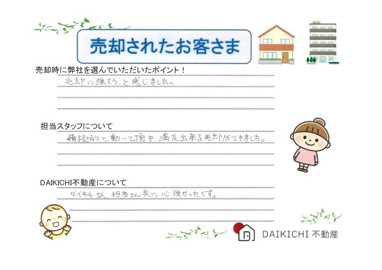 売却されたお客さま
売却時に弊社を選んでいただいたポイント！
売却に強そう、と感じました。
担当スタッフについて
積極的に動いて頂き、満足出来る売却ができました。
DAIKICHI不動産について
ダイキチさん、担当さん共に心強かったです。
DAIKICHI 不動産